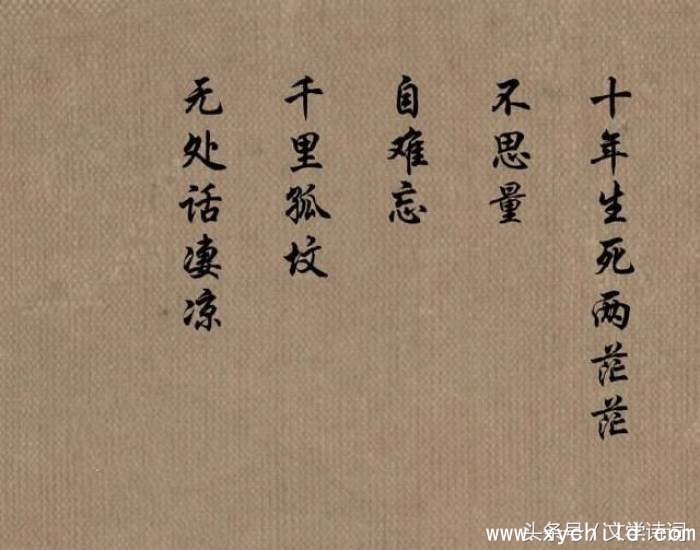 十年生死两茫茫
不思量
自难忘
千里孤坟
无处话凄凉
头条号
文学诗词
www.xychild.com